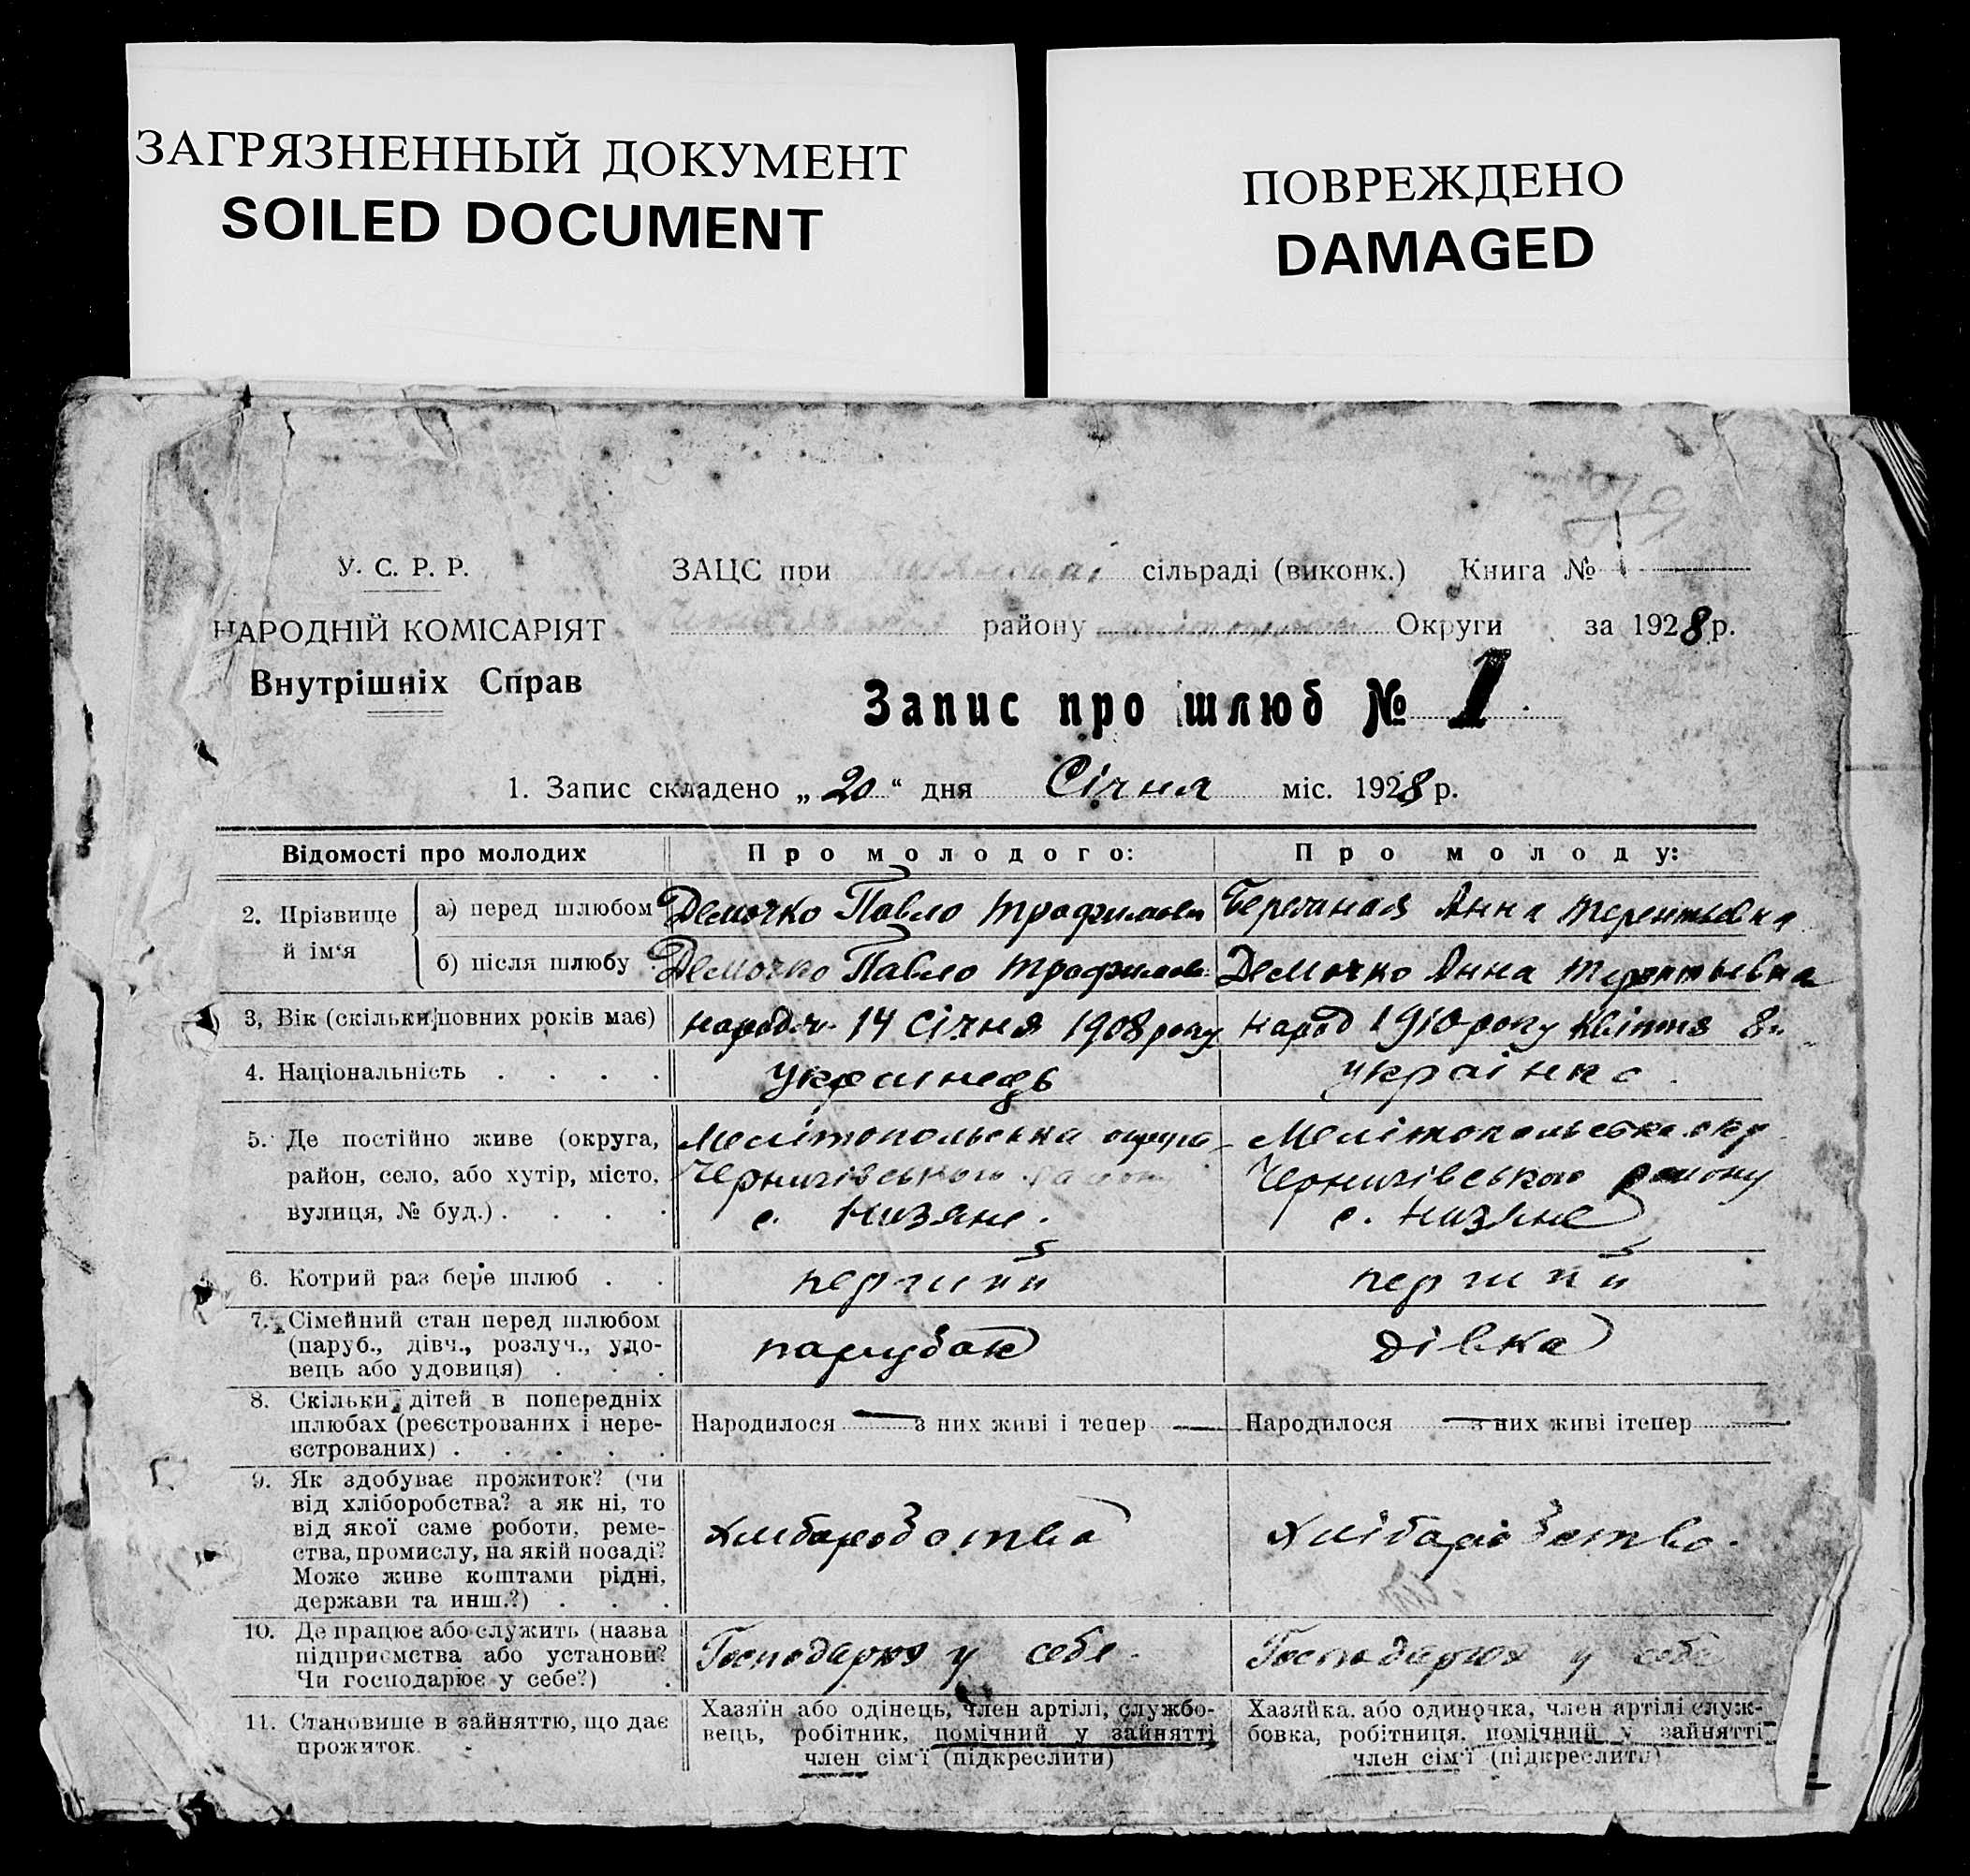 ЗАГРЯЗНЕННЫЙ ДОКУМЕНТ
SOILED DOCUMENT
ПОВРЕЖДЕНО
DAMAGED
У. С. Р. Р.
НАРОДНІЙ КОМІСАРІЯТ
Внутрішніх Справ
ЗАЦС при сільраді (виконк.) Книга № 1
району Округи за 1928 р.
Запис про шлюб № 1
1. Запис складено „20“ дня Січня міс. 1928 р.
Відомості про молодих
Про молодого:
Про молоду:
2. Прізвище й ім‘я
а) перед шлюбом
Демочко Павло Трофимов
Анна Терентьевна
б) після шлюбу
Демочко Павло Трофимов
Демочко Анна Терентьевна
3, Вік (скільки повних років має)
народ. 14 Січня 1908 року
народ 1910 року Квітня 8
4. Національність . . . .
Українець
українка
5. Де постійно живе (округа,
район, село, або хутір, місто,
вулиця, № буд.) . . . .
Мелітопольська округа
Чернигівського району
с. Низяне.
Мелітопольська окр
Чернигівського району
с. Низяне
6. Котрий раз бере шлюб . .
перший
перший
7. Сімейний стан перед шлюбом
(паруб., дівч., розлуч., удо-
вець або удовиця) . . .
парубок
дівка
8. Скільки дітей в попередніх
шлюбах (реєстрованих і нере-
єстрованих) . . . . .
Народилося — з них живі і тепер —
Народилося — з них живі ітепер —
9. Як здобуває прожиток? (чи
від хліборобства? а як ні, то
від якої саме роботи, реме-
ства, промислу, на якій посаді?
Може живе коштами рідні,
держави та инш.?) . . .
Хлибаробство
Хлібаробство.
10. Де працює або служить (назва
підприємства або установи?
Чи господарює у себе?) .
Господарює у себе.
Господарює у себе
11. Становище в зайняттю, що дає
прожиток.
Хазяїн або одінець, член артілі, службо-
вець, робітник, помічний у зайнятті
член сім‘ї (підкреслити)
Хазяйка, або одиночка, член артілі служ-
бовка, робітниця, помічний у зайнятті
член сім‘ї (підкреслити)